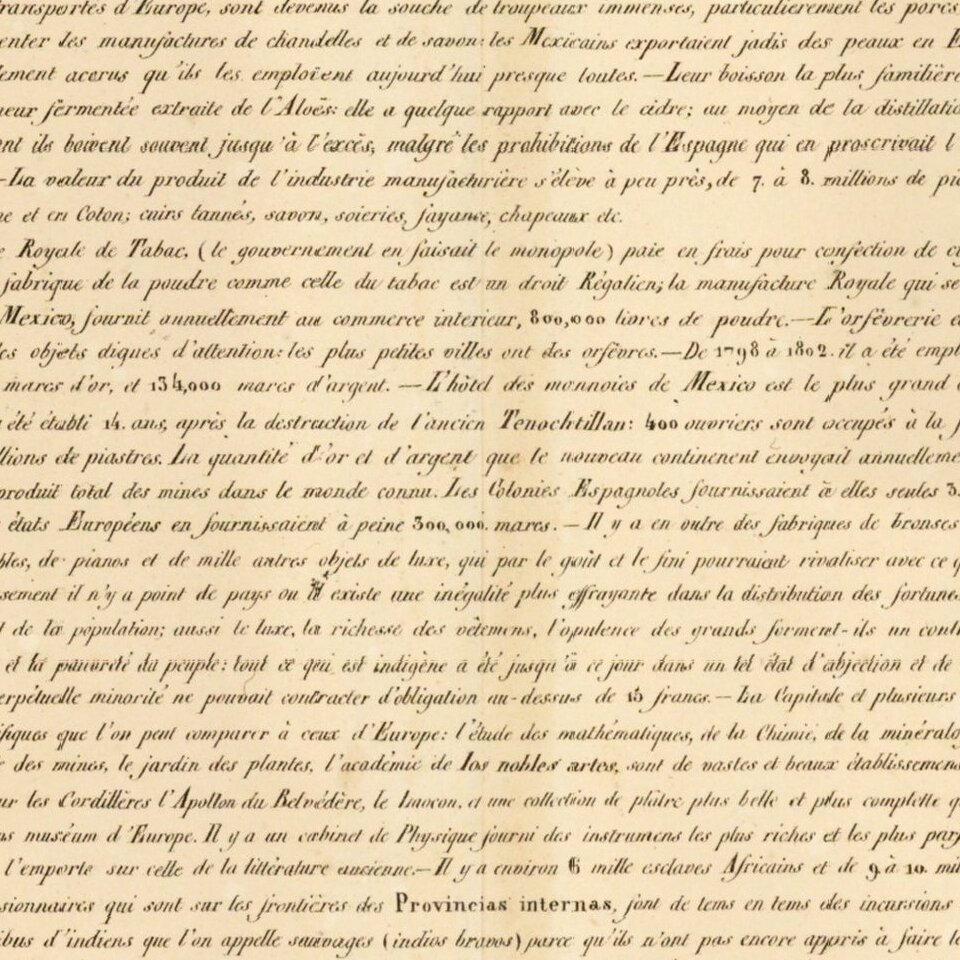 transportés d'Europe, sont devenus la souche de troupeaux immenses, particulièrement les porcs
enter les manufactures de chandelles et de savon: les Mexicains exportaient jadis des peaux en E
lement accrus qu'ils les emploient aujourd'hui presque toutes.—Leur boisson la plus familière
ueur fermentée extraite de l'Aloës: elle a quelque rapport avec le cidre; au moyen de la distillatio
ont ils boivent souvent jusqu'à l'excès, malgré les prohibitions de l'Espagne qui en proscrivait l
—La valeur du produit de l'industrie manufacturière s'élève à peu près, de 7. à 8. millions de pia
ne et en Coton; cuirs tannés, savon, soieries, fayance, chapeaux etc.
e Royale de Tabac, (le gouvernement en faisait le monopole) paie en frais pour confection de ci
fabrique de la poudre comme celle du tabac est un droit Régalien; la manufacture Royale qui se
Mexico, fournit annuellement au commerce interieur, 800,000 livres de poudre.—L'orfèvrerie e
les objets dignes d'attention: les plus petites villes ont des orfèvres.—De 1798 à 1802. il a été empl
mares d'or, et 134,000 mares d'argent. — L'hôtel des monnoies de Mexico est le plus grand e
a été établi 14. ans, après la destruction de l'ancien Tenochtillan: 400 ouvriers sont occupés à la f
llions de piastres. La quantité d'or et d'argent que le nouveau continent envoyait annuelleme
produit total des mines dans le monde connu. Les Colonies Espagnoles fournissaient à elles seules 3.
états Européens en fournissaient à peine 300,000. mares. — Il y a en outre des fabriques de bronses
bles, de pianos et de mille autres objets de luxe, qui par le goût et le fini pourraient rivaliser avec ce q
sement il n'y a point de pays ou il existe une inégalité plus effrayante dans la distribution des fortunes
t de la population; aussi le luxe, la richesse des vêtemens, l'opulence des grands forment-ils un cont
et la pauvreté du peuple: tout ce qui est indigène a été jusqu'à ce jour dans un tel état d'abjection et de
perpétuelle minorité ne pouvait contracter d'obligation au-dessus de 15 francs.— La Capitale et plusieurs
ifiques que l'on peut comparer à ceux d'Europe: l'étude des mathématiques, de la Chimie, de la minéralo
e des mines, le jardin des plantes, l'académie de los nobles artes, sont de vastes et beaux établissemens
ur les Cordillères l'Apollon du Belvédère, le Laocon, et une collection de plâtre plus belle et plus complette q
ns muséum d'Europe. Il y a un cabinet de Physique fourni des instrumens les plus riches et les plus parf
l'emporte sur celle de la littérature ancienne.— Il y a environ 6 mille esclaves Africains et de 9 à 10. mil
sionnaires qui sont sur les frontières des Provincias internas, font de tems en tems des incursions
ibus d'indiens que l'on appelle sauvages (indios bravos) parce qu'ils n'ont pas encore appris à faire le